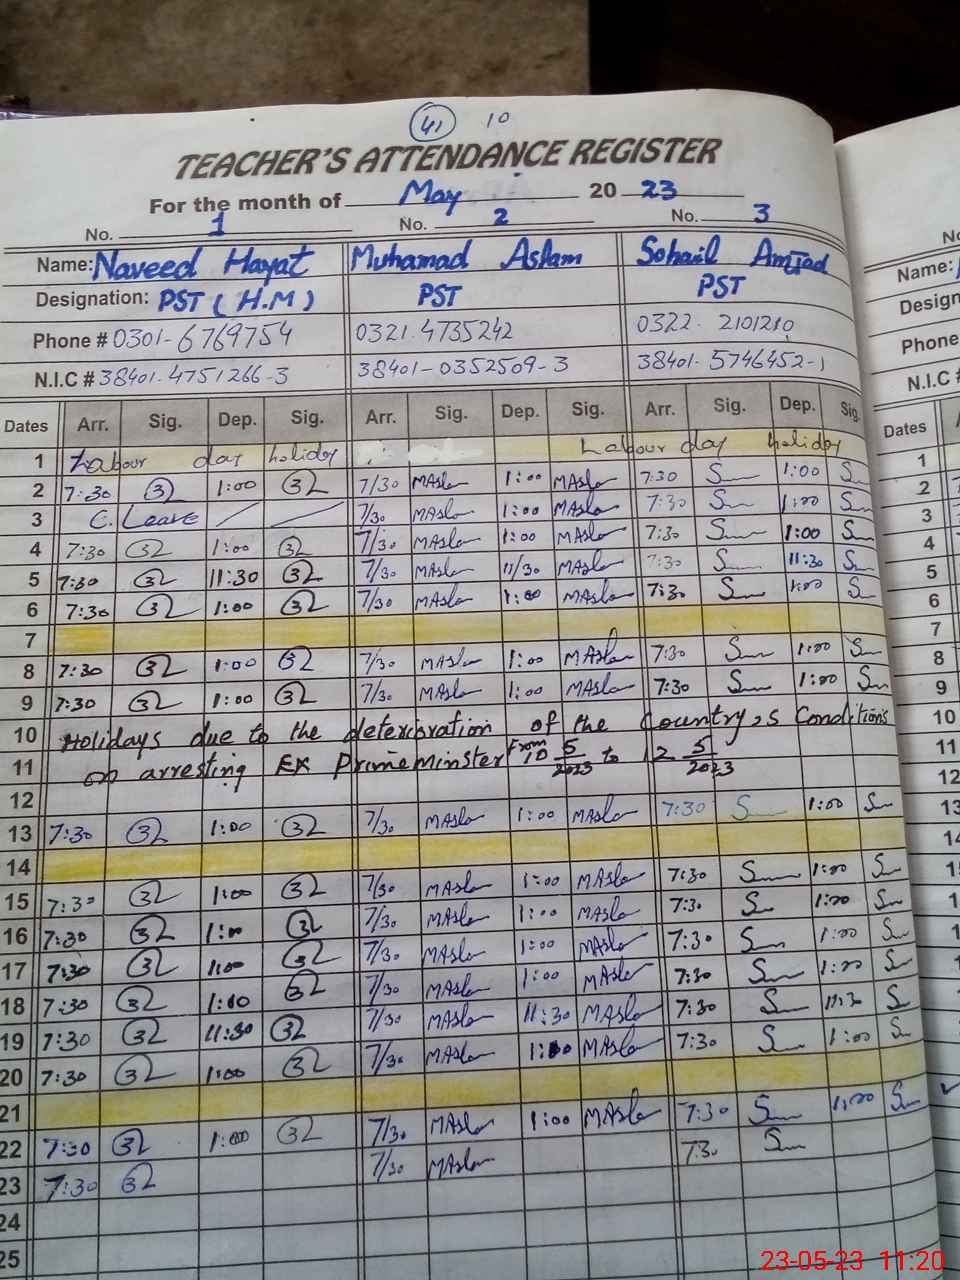 41 10
TEACHER'S ATTENDANCE REGISTER
For the month of May 2023
No. 1 No. 2 No. 3
Name: Naveed Hayat Muhamad Aslam Sohail Amjad
Designation: PST (H.M) PST PST
Phone # 0301-6769754 0321.4735242 0322. 2101210
N.I.C # 38401-4751266-3 38401-0352509-3 38401-5746452-1
Dates Arr. Sig. Dep. Sig. Arr. Sig. Dep. Sig. Arr. Sig. Dep. Sig.
1 Labour day holiday Labour day holiday
2 7:30 1:00 7/30 MAslam 1:00 MAslam 7:30 1:00
3 C. Leave 7/30 MAslam 1:00 MAslam 7:30 1:00
4 7:30 1:00 7/30 MAslam 1:00 MAslam 7:30 1:00
5 7:30 11:30 7/30 MAslam 11/30 MAslam 7:30 11:30
6 7:30 1:00 7/30 MAslam 1:00 MAslam 7:30 1:00
7
8 7:30 1:00 7/30 MAslam 1:00 MAslam 7:30 1:00
9 7:30 1:00 7/30 MAslam 1:00 MAslam 7:30 1:00
10 Holidays due to the deterioration of the Country,s Conditions
11 on arresting EX Primeminster From 10 5/2023 to 12 5/2023
12
13 7:30 1:00 7/30 MAslam 1:00 MAslam 7:30 1:00
14
15 7:30 1:00 7/30 MAslam 1:00 MAslam 7:30 1:00
16 7:30 1:00 7/30 MAslam 1:00 MAslam 7:30 1:00
17 7:30 1:00 7/30 MAslam 1:00 MAslam 7:30 1:00
18 7:30 1:00 7/30 MAslam 1:00 MAslam 7:30 1:00
19 7:30 11:30 7/30 MAslam 11:30 MAslam 7:30 11:30
20 7:30 1:00 7/30 MAslam 1:00 MAslam 7:30 1:00
21
22 7:30 1:00 7/30 MAslam 1:00 MAslam 7:30 1:00
23 7:30 7/30 MAslam 7:30
24
25
No
Name:
Design
Phone
N.I.C #
Dates
1
2
3
4
5
6
7
8
9
10
11
12
13
14
23-05-23 11:20